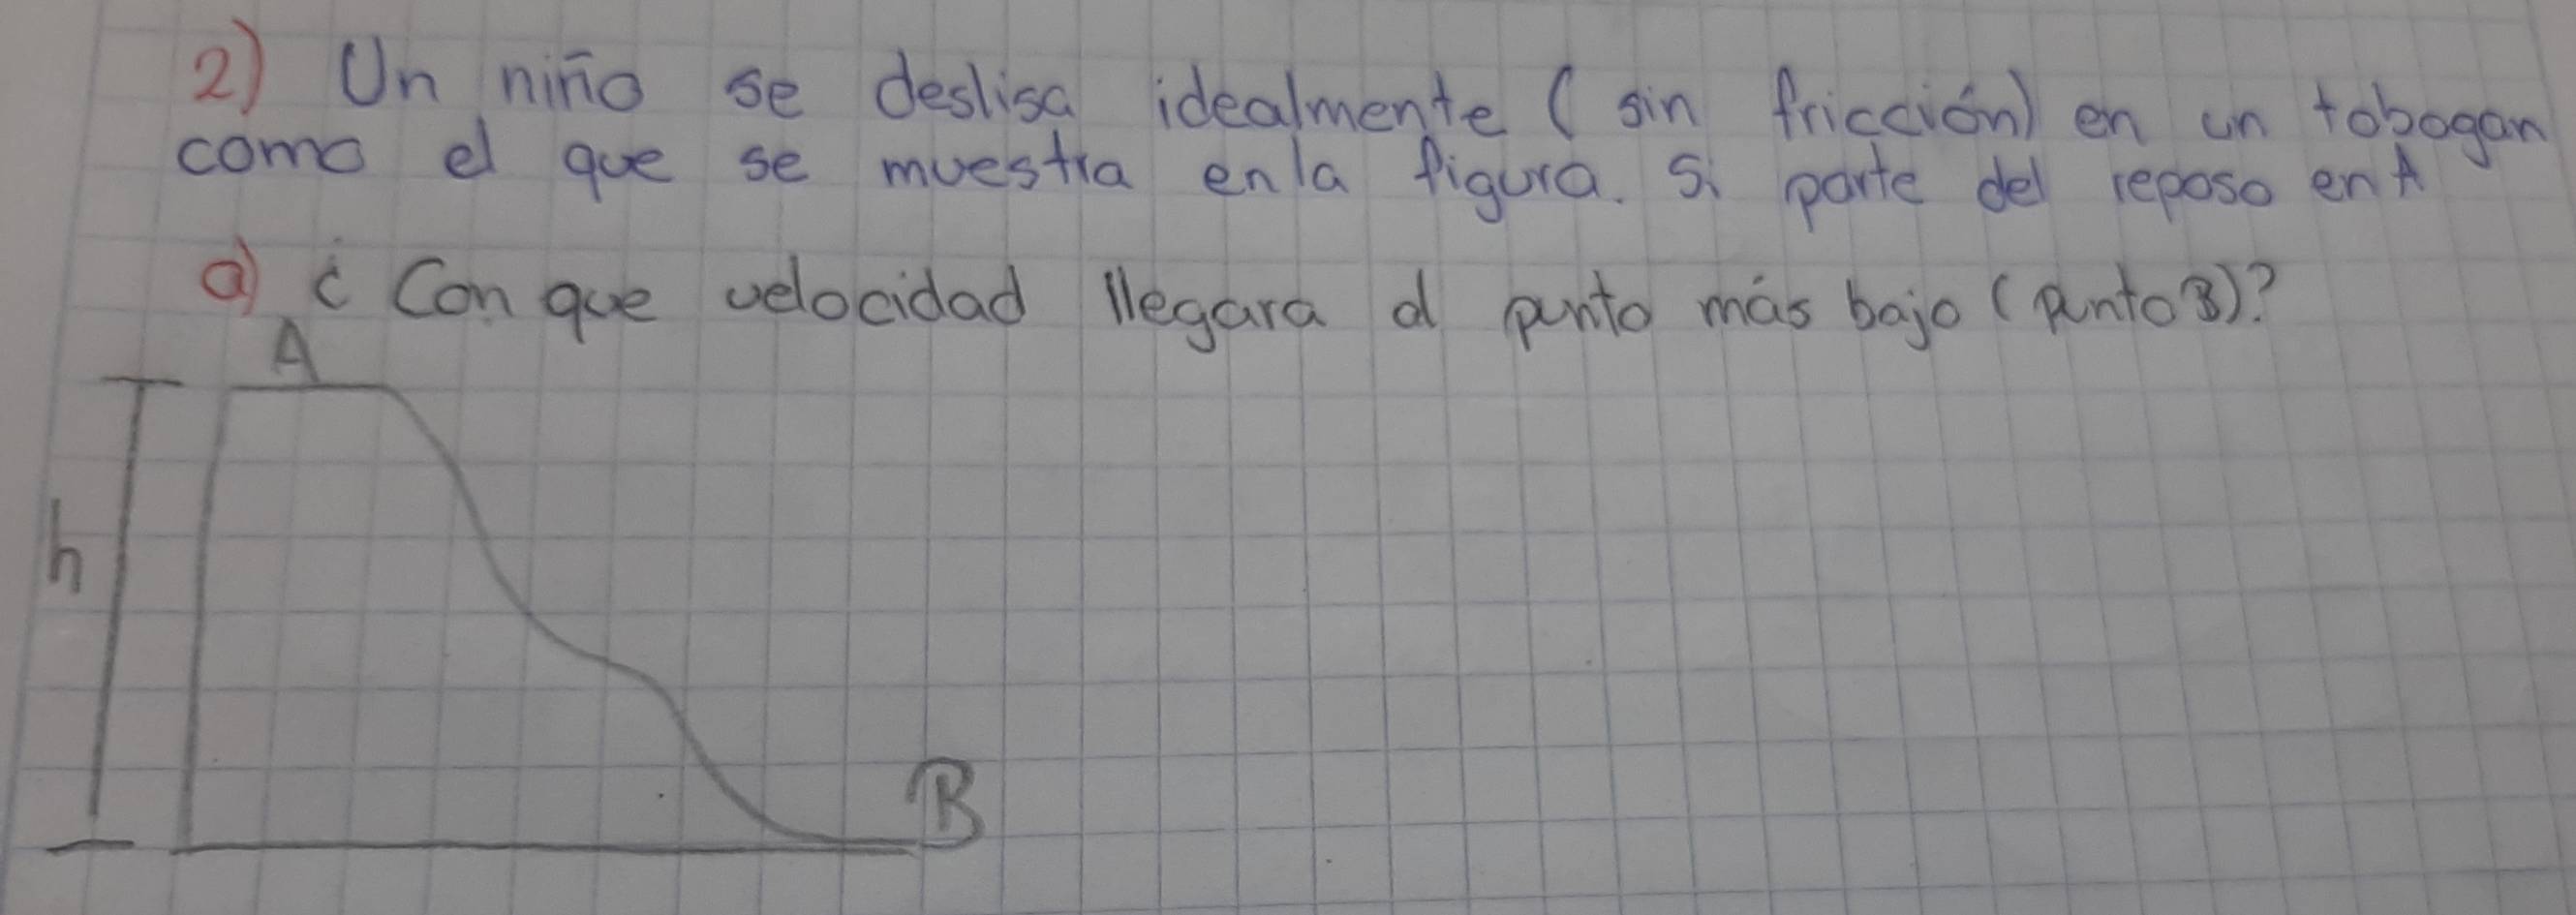 2) Un niño se deslisa idealmente (sin fricción) en un tobogan
como el que se muestra en la figura. Si parte del reposo en A
a) ¿Con que velocidad llegara al punto más bajo (punto B)?
A
h
B